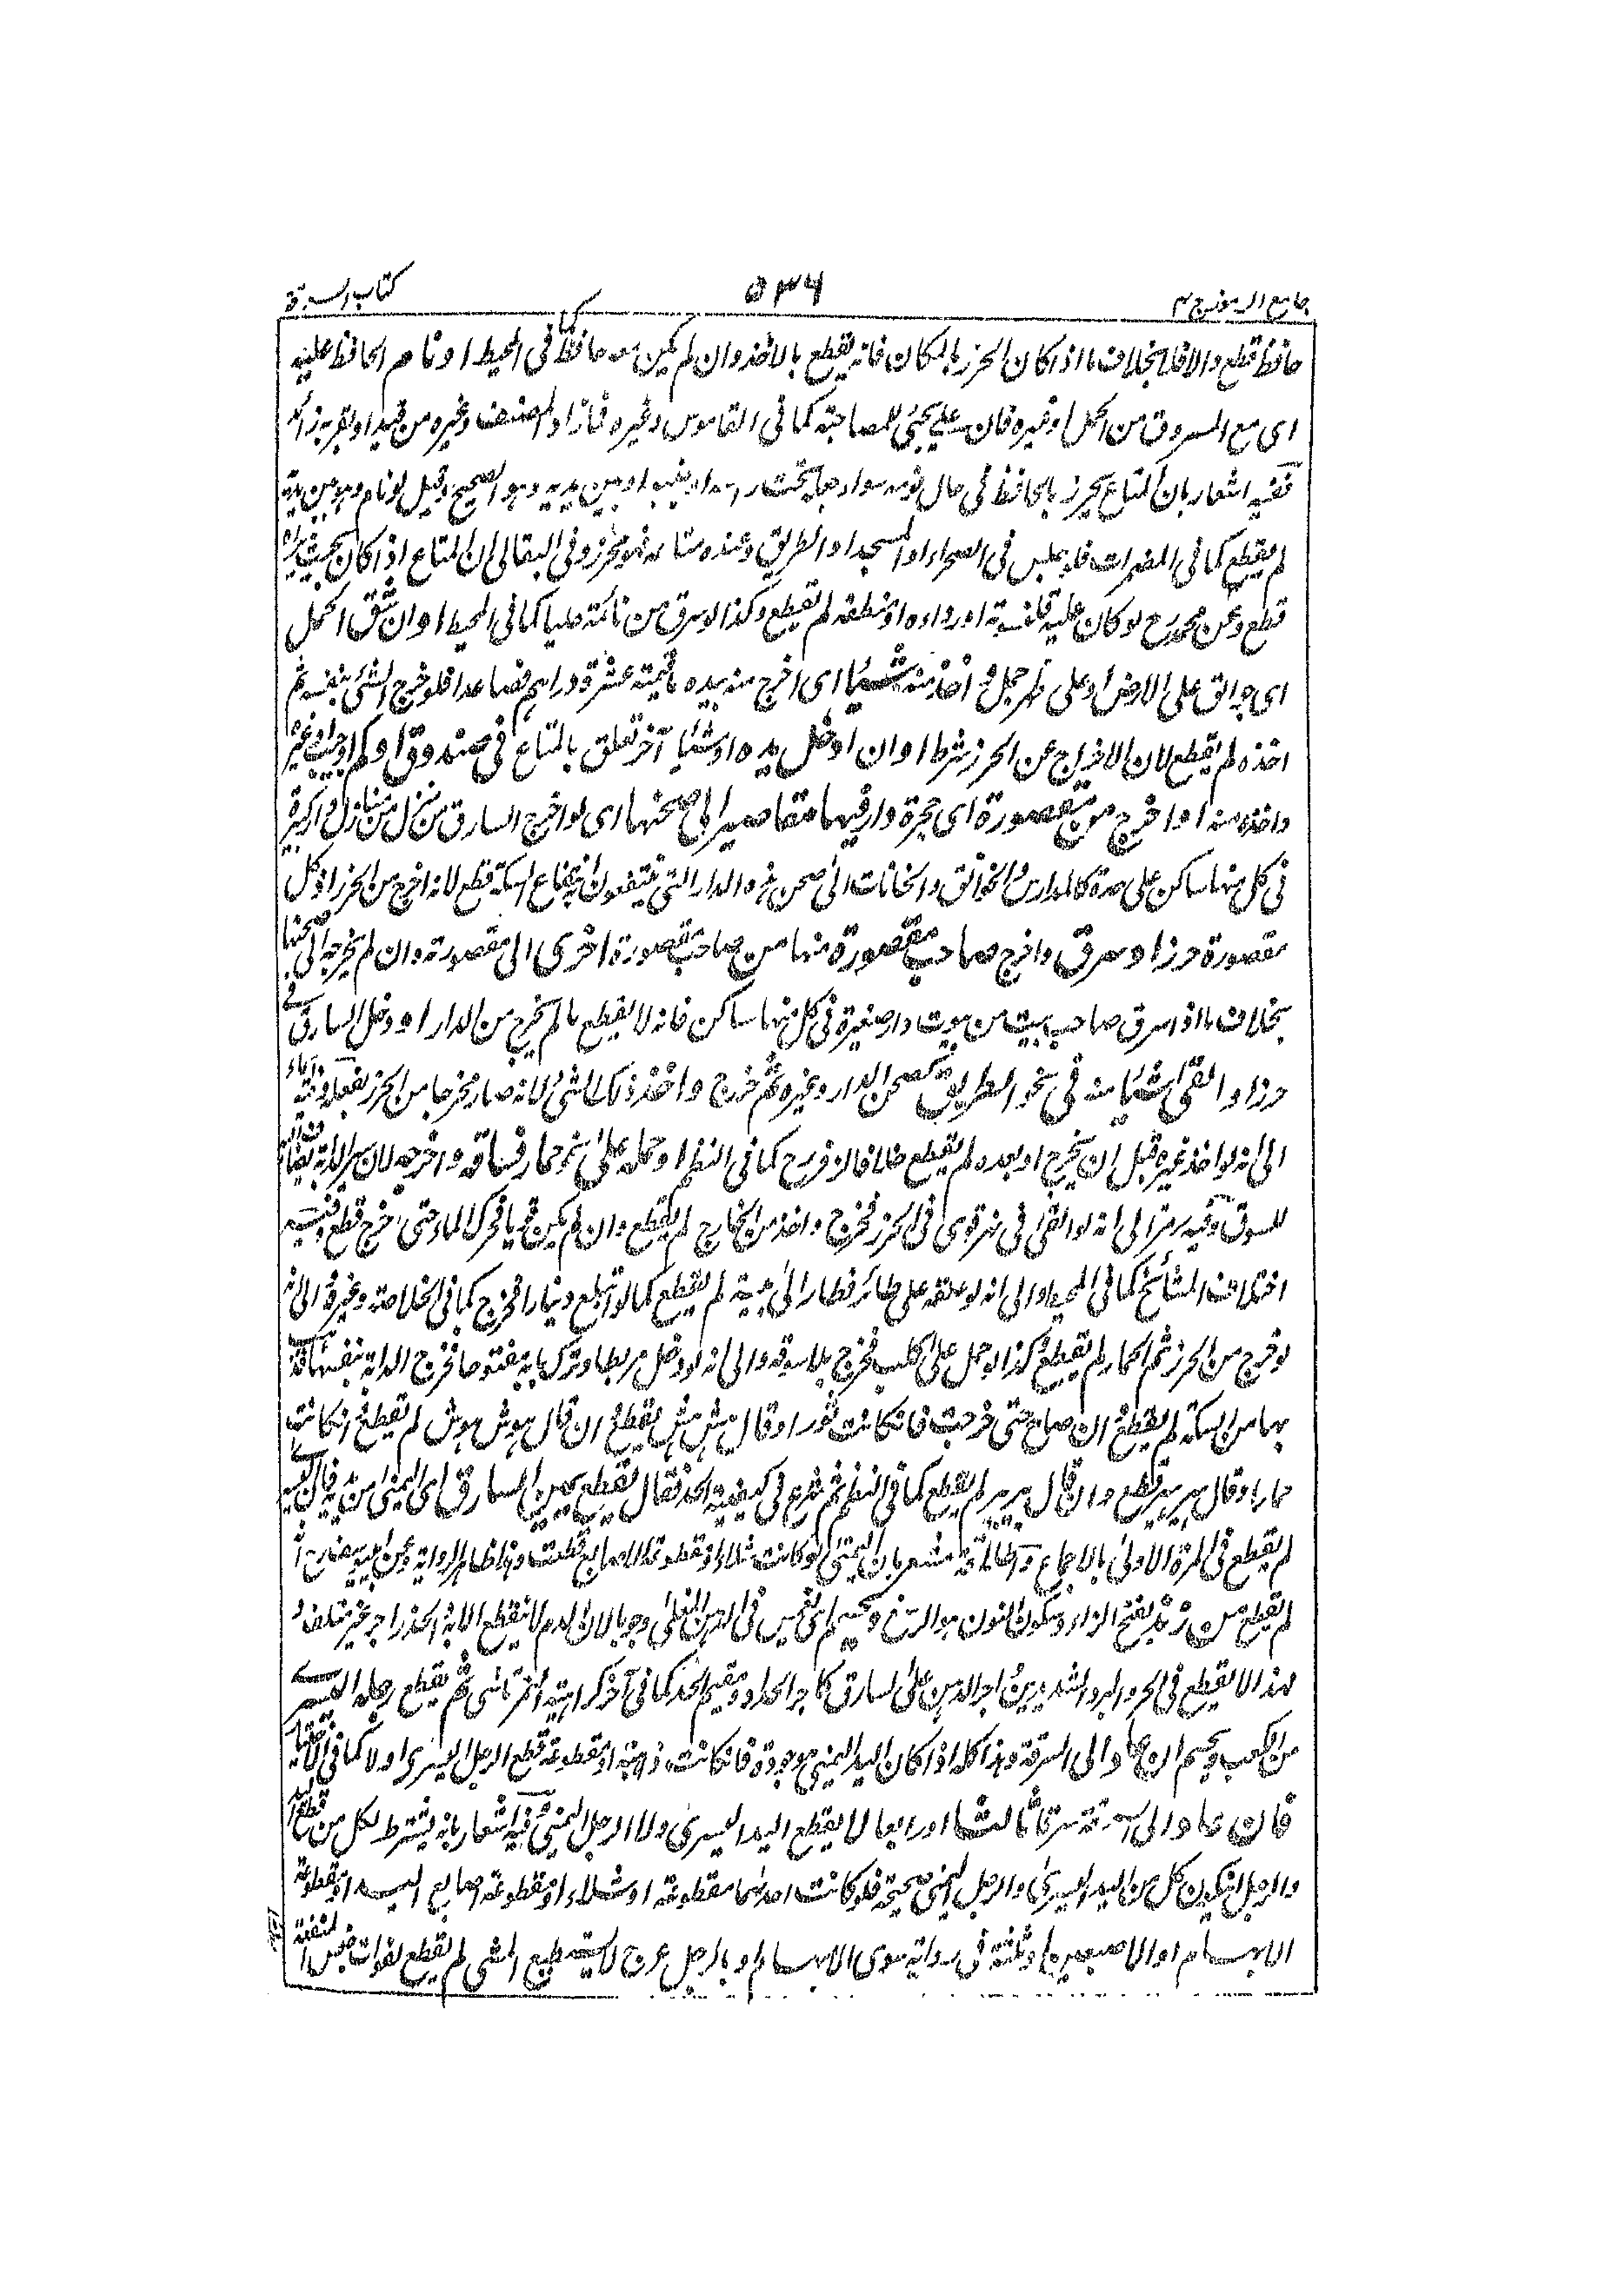 جامع الرموز ج ٢
٥٣٦
كتاب السرقة
حافظ قطع والا فلا بخلاف ما اذا كان الحرز بالمكان فانه يقطع بالاخذ وان لم يكن معه حافظ كما فى المحيط او نام الحافظ عليه
اى مع المسروق من الحمل او غيره فان على يجئ للمصاحبة كما فى القاموس وغيره فما زاد المصنف وغيره من قيد او بقربه زائد
ففيه اشعار بان المتاع يحرز بالحافظ فى حال نومه سواء جعله تحت رأسه او جنبه او بين يديه وهو الصحيح وقيل لو نام وهو بين يديه
لم يقطع كما فى المضمرات فلو جلس فى الصحراء او المسجد او الطريق وعنده متاعه فهو محرز وفى البقالى ان المتاع اذا كان بحيث يراه
قطع وعن محمد رح لو كان عليه قلنسوة او رداءه او منطقه لم يقطع وكذا لو سرق من نائمة حليا كما فى المحيط او ان شق الحمل
اى جوالق على الارض او على ظهر جمل واخذ منه شيئا اى اخرج منه بيده ما قيمته عشرة دراهم فصاعدا فلو خرج الشئ بنفسه ثم
اخذه لم يقطع لان الاخراج عن الحرز شرط او ان ادخل يده او شيئا آخر تعلق بالمتاع فى صندوق او كم او جيب او غيره
واخذه منه او اخرج من مقصورة اى حجرة دار فيها مقاصير الى صحنها اى لو اخرج السارق من منزل من منازل دار كبيرة
فى كل منها ساكن على حدة كالمدارس والخوانق والخانات الى صحن هذه الدار التى ينتفعون به انتفاع السكة قطع لانه اخرج من الحرز اذ كل
مقصورة حرز او سرق واخرج صاحب مقصورة منها من صاحب مقصورة اخرى الى مقصورته وان لم يخرجه الى صحنها
بخلاف ما اذا سرق صاحب بيت من بيوت دار صغيرة فى كل منها ساكن فانه لا يقطع ما لم يخرج من الدار او دخل السارق فى
حرز او القى شيئا منه فى نحو الطريق كصحن الدار وغيره ثم خرج واخذ ذلك الشئ لانه صار مخرجا من الحرز بفعله وفيه ايماء
الى انه لو اخذ غيره قبل ان يخرج او بعده لم يقطع خلافا لزفر رح كما فى النظم او حمله على نحو حمار فساقه واخرجه لان سير الدابة يضاف
للسوق وفيه رمز الى انه لو القى فى نهر قوى فى الحرز فخرج واخذ من الخارج لم يقطع وان لم يكن قويا فحرك الماء حتى خرج قطع وفيه
اختلاف المشائخ كما فى المحيط والى انه لو علقه على طائر فطار الى بيته لم يقطع كما لو ابتلع دينارا فخرج كما فى الخلاصة وغيره والى انه
لو خرج من الحرز ثم الحمار لم يقطع وكذا لو حمل على كلب فخرج بلا سوقه والى انه لو دخل مربطا وترك بابه مفتوحا فخرج الدابة بنفسها
بها من السكة لم يقطع وان صاح حتى خرجت فان كانت ثورا وقال هش هش يقطع وان قال هوش هوش لم يقطع وان كانت
حمارا وقال هر هر قطع وان قال لم يقطع كما فى النظم ثم شرع فى كيفية الحد فقال يقطع يمين السارق اى اليمنى من يديه فان اليسرى
لم يقطع فى المرة الاولى بالاجماع واطلاقه مشعر بان اليمنى لو كانت شلاء او مقطوعة الاصابع قطعت وهذا ظاهر الرواية وعن ابى يوسف رح انه
لم يقطع من زنده بفتح الزاء وسكون النون هو الرسغ ويحسم اى يغمس فى الدهن المغلى وجوبا لان الدم لا ينقطع الا به والحد زاجر غير متلف و
لهذا لا يقطع فى الحر والبرد الشديدين واجر الدهن على السارق كاجر الحداد ومقيم الحد كما فى آخر كراهية التمرتاشى ثم يقطع رجله اليسرى
من الكعب ويحسم ان عاد الى السرقة وهذا كله اذا كان اليد اليمنى موجودة فان كانت ذاهبة او مقطوعة قطع الرجل اليسرى اولا كما فى
فان عاد الى السرقة سرقا ثالثا او رابعا لا يقطع اليد اليسرى ولا الرجل اليمنى وفيه اشعار بانه يشترط لكل من قطع اليد
والرجل ان يكون كل من اليد اليسرى والرجل اليمنى صحيحة فلو كانت احدٰهما مقطوعة او شلاء او مقطوعة اصابع اليد او مقطوعة
الابهام او الاصبعين او ثلثة فى رواية سوى الابهام او بالرجل عرج لا يستطيع المشى لم يقطع لفوات جنس المنفعة